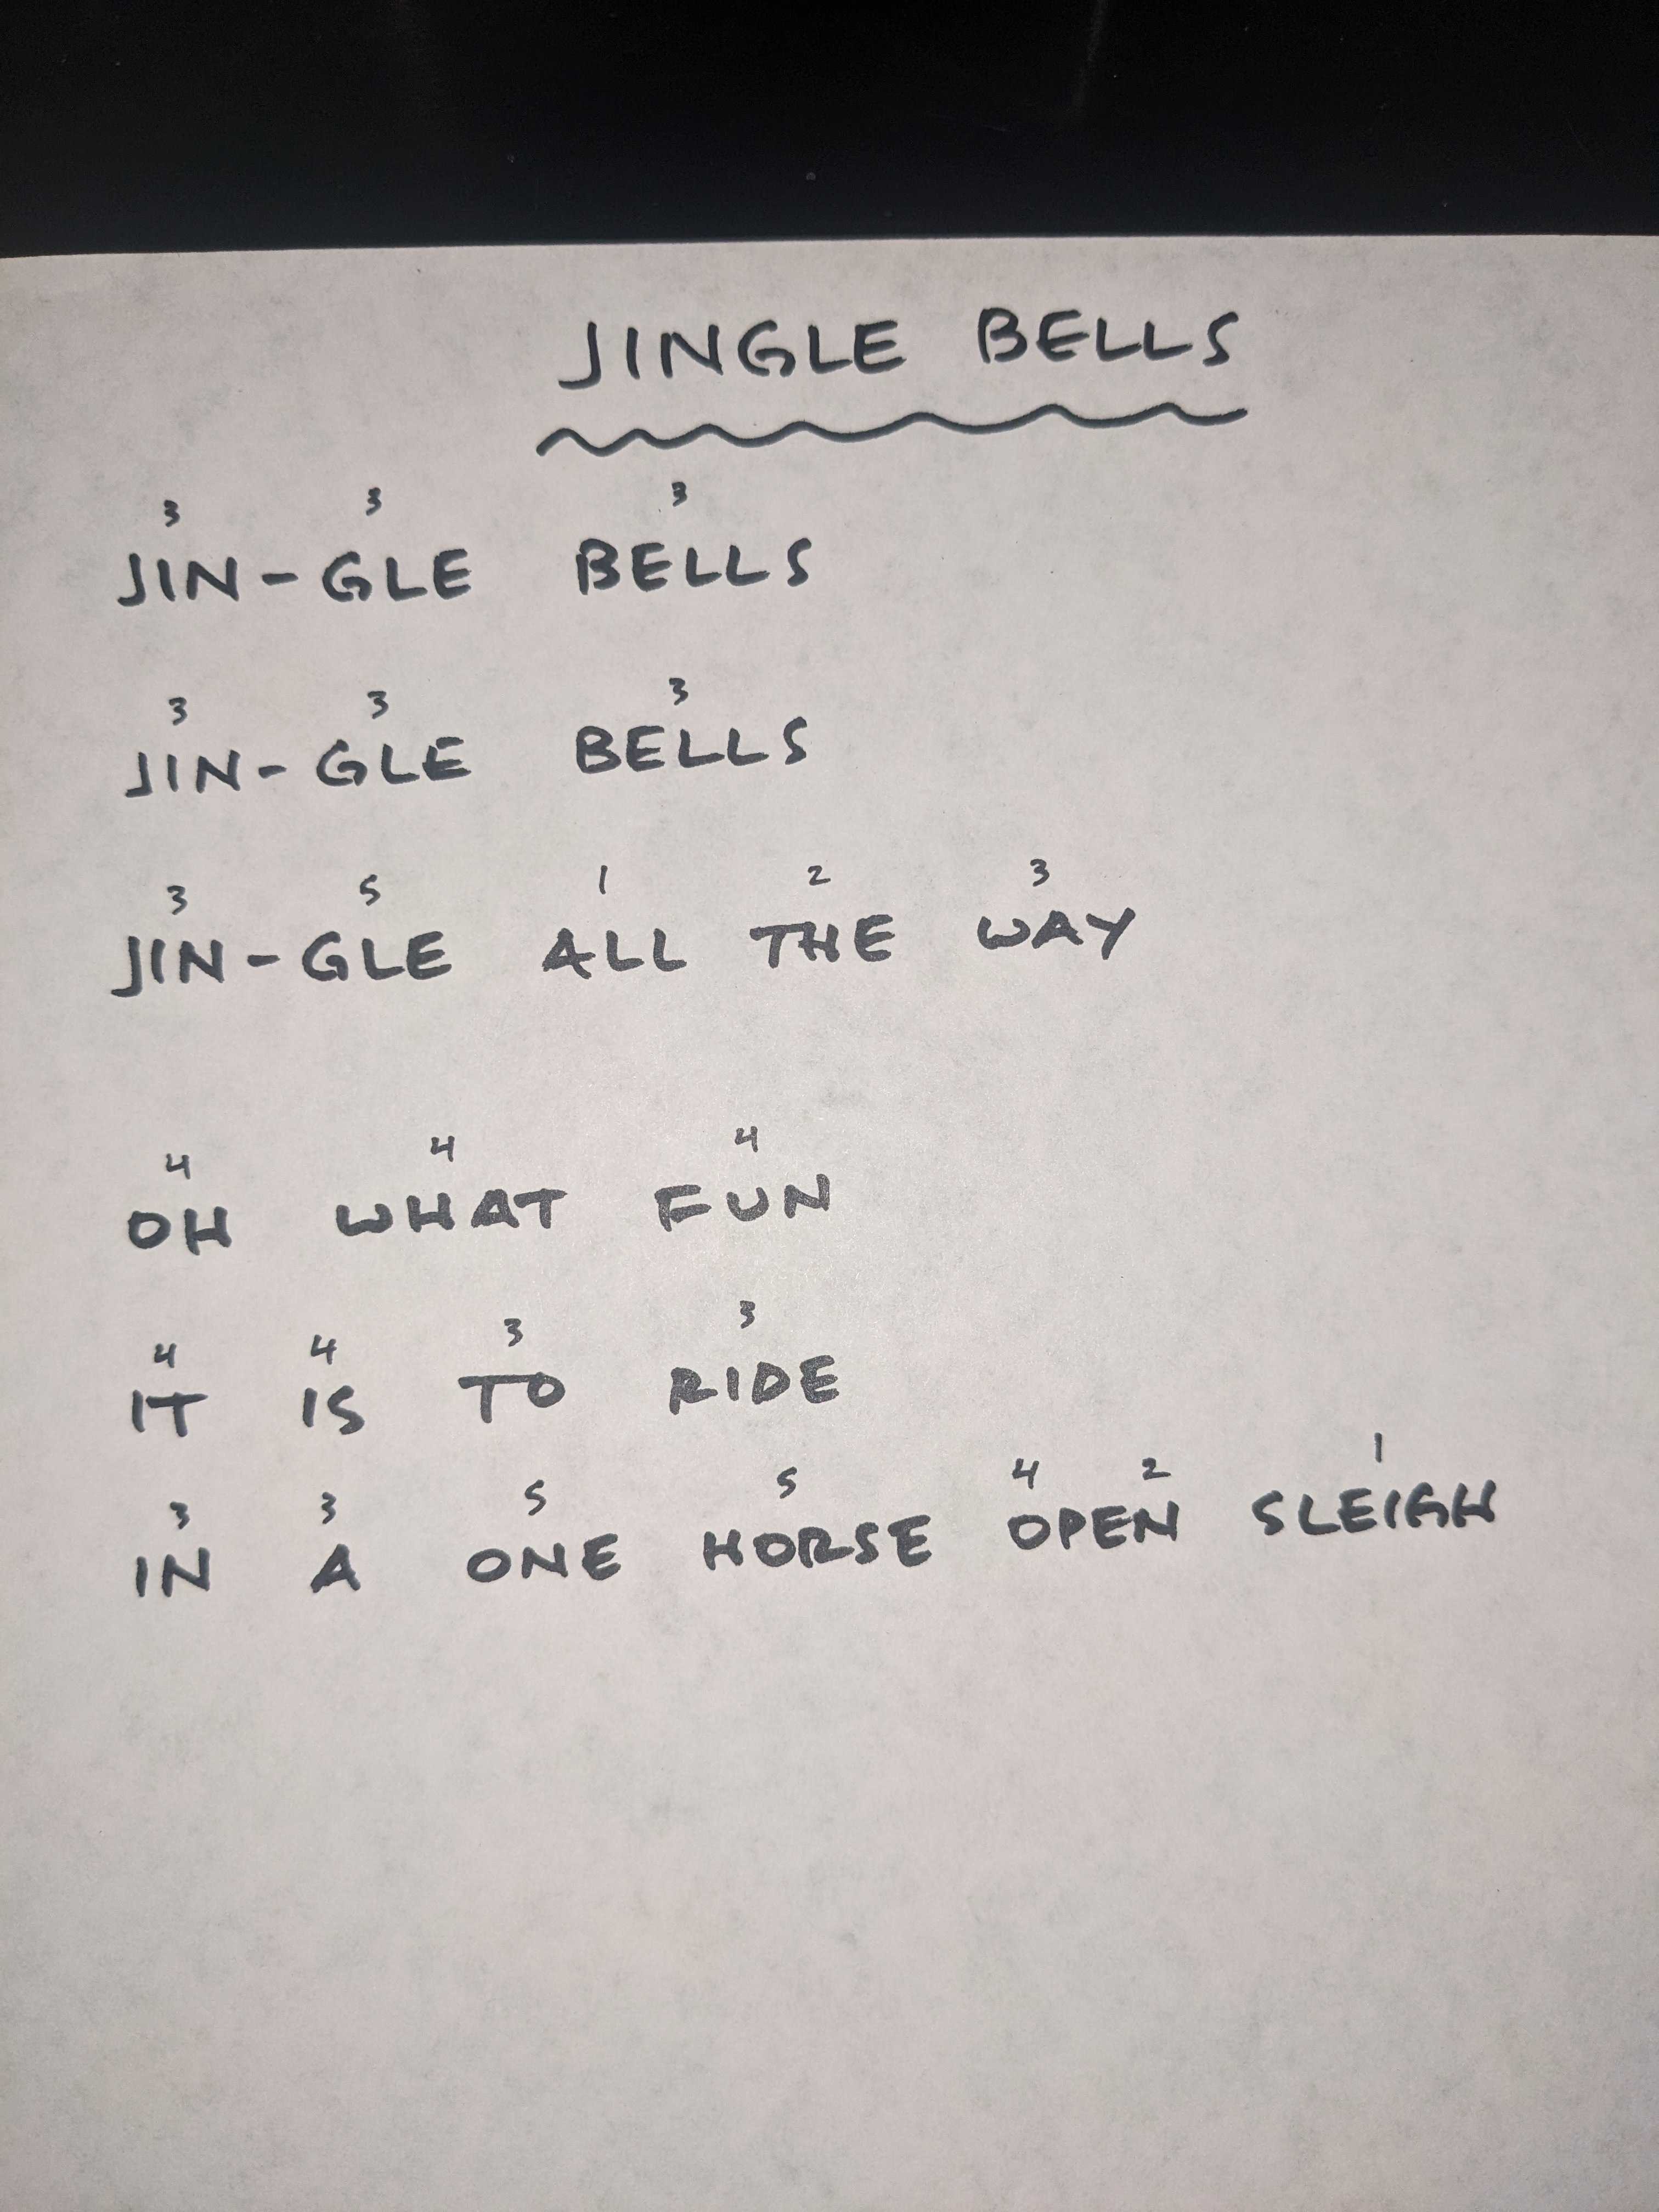 JINGLE BELLS
3 3 3
JIN-GLE BELLS
3 3 3
JIN-GLE BELLS
3 5 1 2 3
JIN-GLE ALL THE WAY
4 4 4
OH WHAT FUN
4 4 3 3
IT IS TO RIDE
3 3 5 5 4 2 1
IN A ONE HORSE OPEN SLEIGH